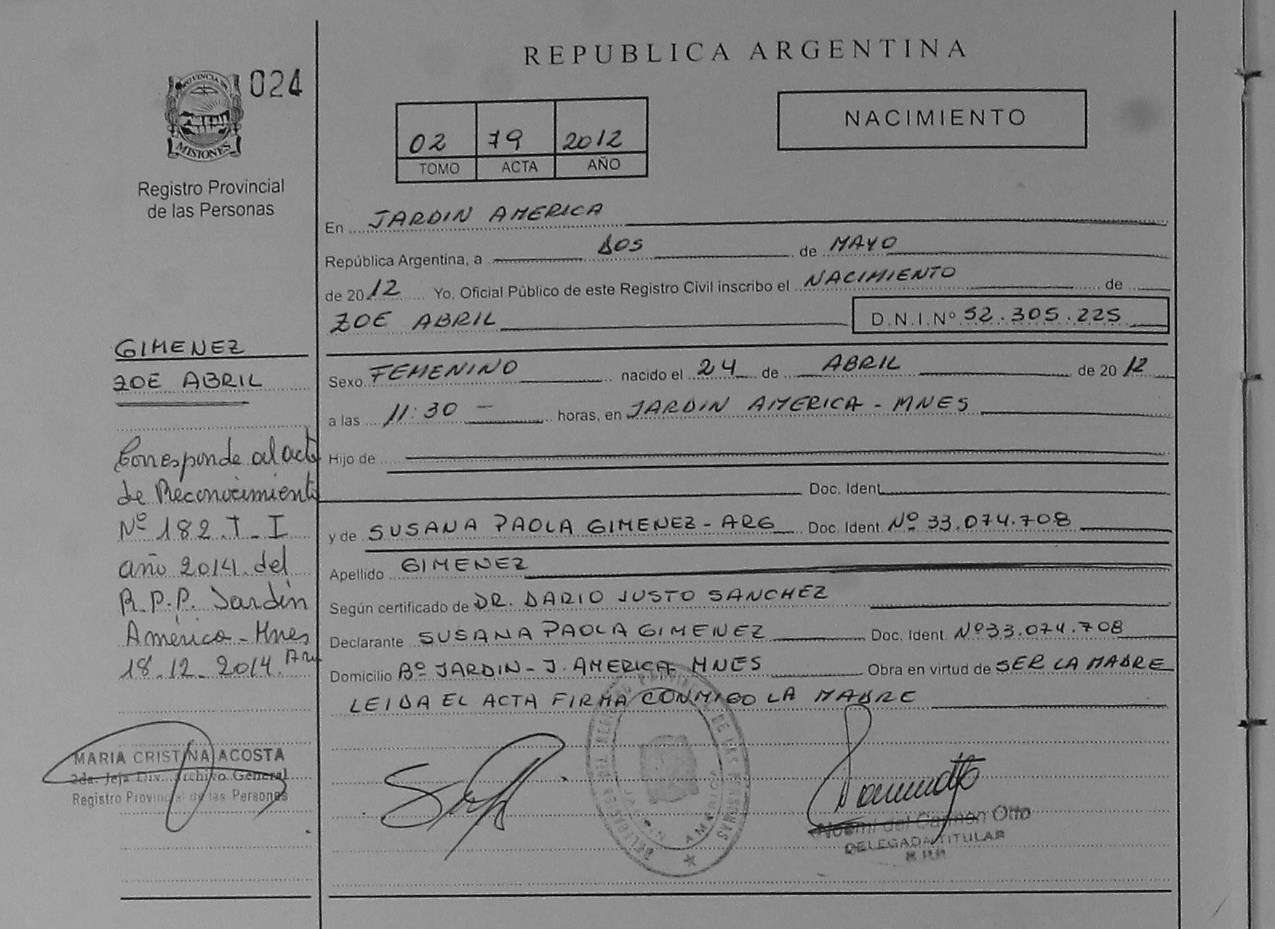 REPUBLICA ARGENTINA
024
PROVINCIA DE
MISIONES
Registro Provincial
de las Personas
02 79 2012
TOMO ACTA AÑO
NACIMIENTO
En JARDIN AMERICA
República Argentina, a DOS de MAYO
de 2012 Yo, Oficial Público de este Registro Civil inscribo el NACIMIENTO de
ZOE ABRIL D.N.I.Nº 52.305.225
Sexo FEMENINO nacido el 24 de ABRIL de 2012
a las 11:30 - horas, en JARDIN AMERICA - MNES
Hijo de
Doc. Ident.
y de SUSANA PAOLA GIMENEZ - ARG Doc. Ident. Nº 33.074.708
Apellido GIMENEZ
Según certificado de DR. DARIO JUSTO SANCHEZ
Declarante SUSANA PAOLA GIMENEZ Doc. Ident. Nº 33.074.708
Domicilio Bº JARDIN - J. AMERICA MNES Obra en virtud de SER LA MADRE
LEIDA EL ACTA FIRMA CONMIGO LA MADRE
GIMENEZ
ZOE ABRIL
Corresponde al acta
de Reconocimiento
Nº 182 T - I
año 2014 del
R.P.P. Jardín
América - Mnes
18.12.2014.
MARIA CRISTINA ACOSTA
2da. Jefa Div. Archivo General
Registro Provincial de las Personas
DE LAS PERSONAS
JARDIN AMERICA
Noemi del Carmen Otto
DELEGADA TITULAR